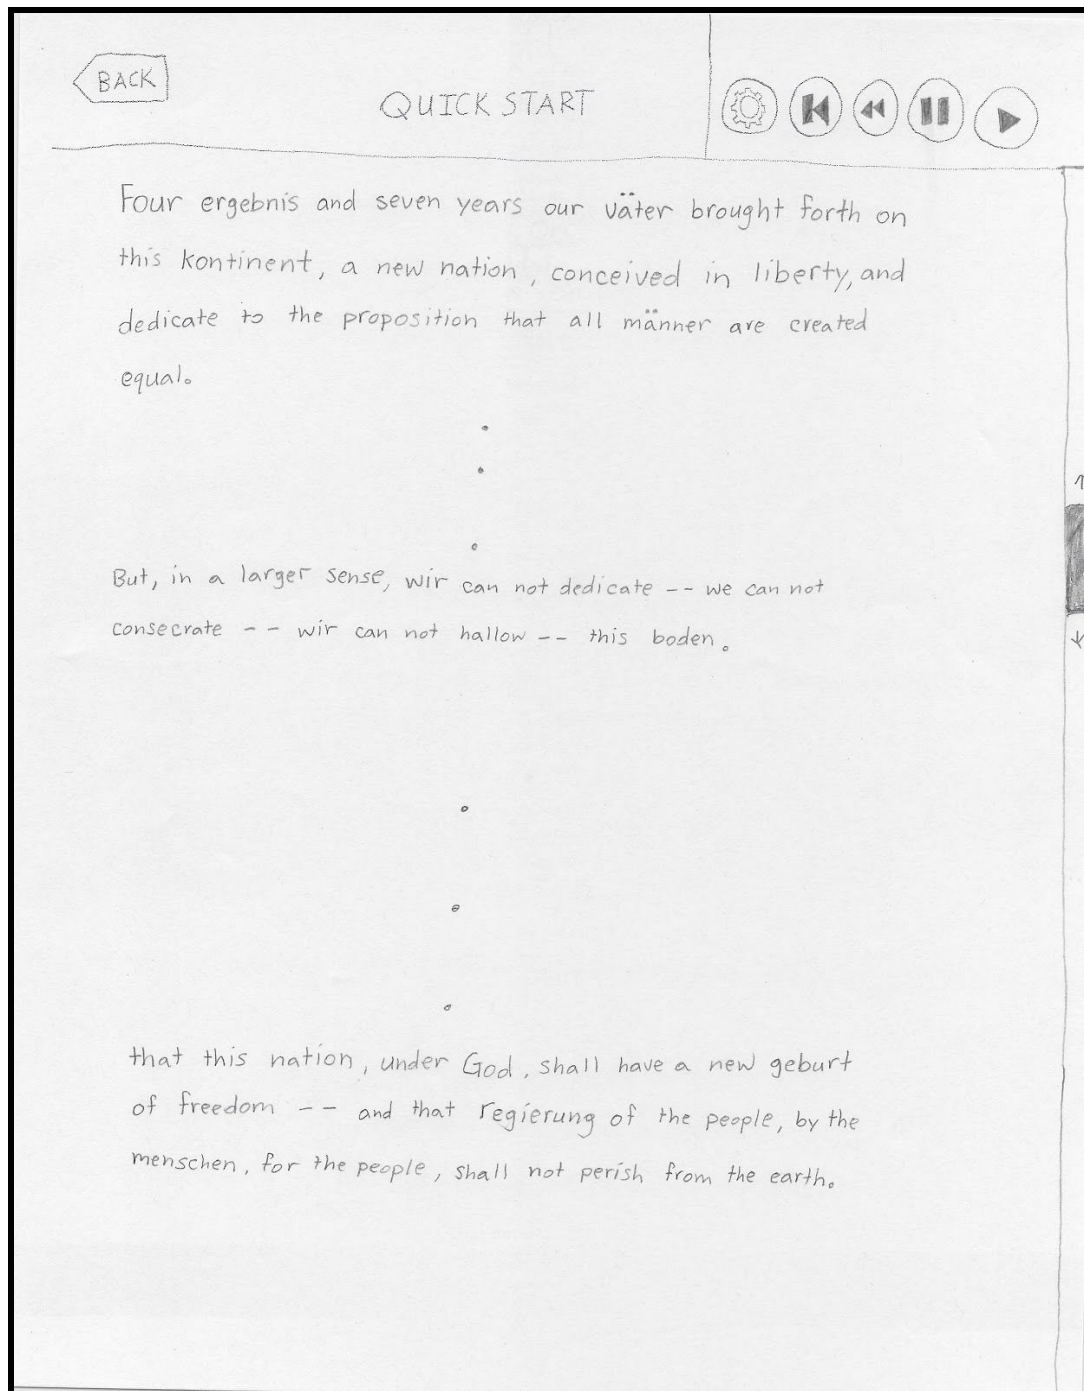 BACK
QUICK START
Four ergebnis and seven years our väter brought forth on
this kontinent, a new nation, conceived in liberty, and
dedicate to the proposition that all männer are created
equal.
But, in a larger sense, wir can not dedicate -- we can not
consecrate -- wir can not hallow -- this boden.
that this nation, under God, shall have a new geburt
of freedom -- and that regierung of the people, by the
menschen, for the people, shall not perish from the earth.